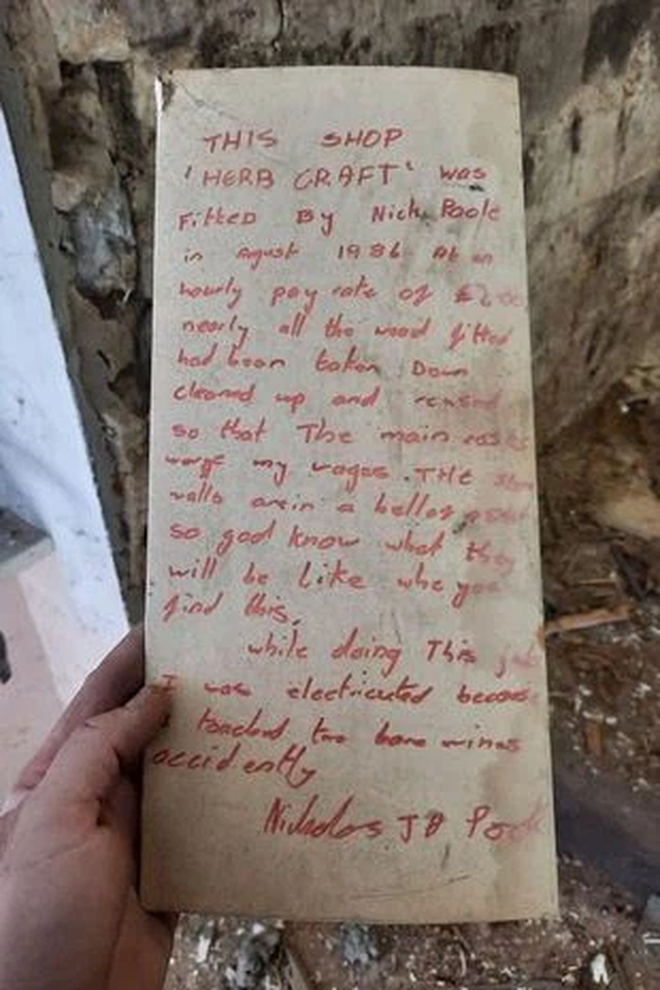 THIS SHOP
'HERB CRAFT' was
Fitted By Nick Poole
in agust 1986 At an
hourly pay rate of
nearly all the wood fitted
had been taken Down
cleaned up and reused
so that The main
my wages. THE
walls in a
so god know what they
will be like whe you
find this.
while doing This job
I was electricuted because
I touched two bare wires
accidently
Nicholas J B Poole